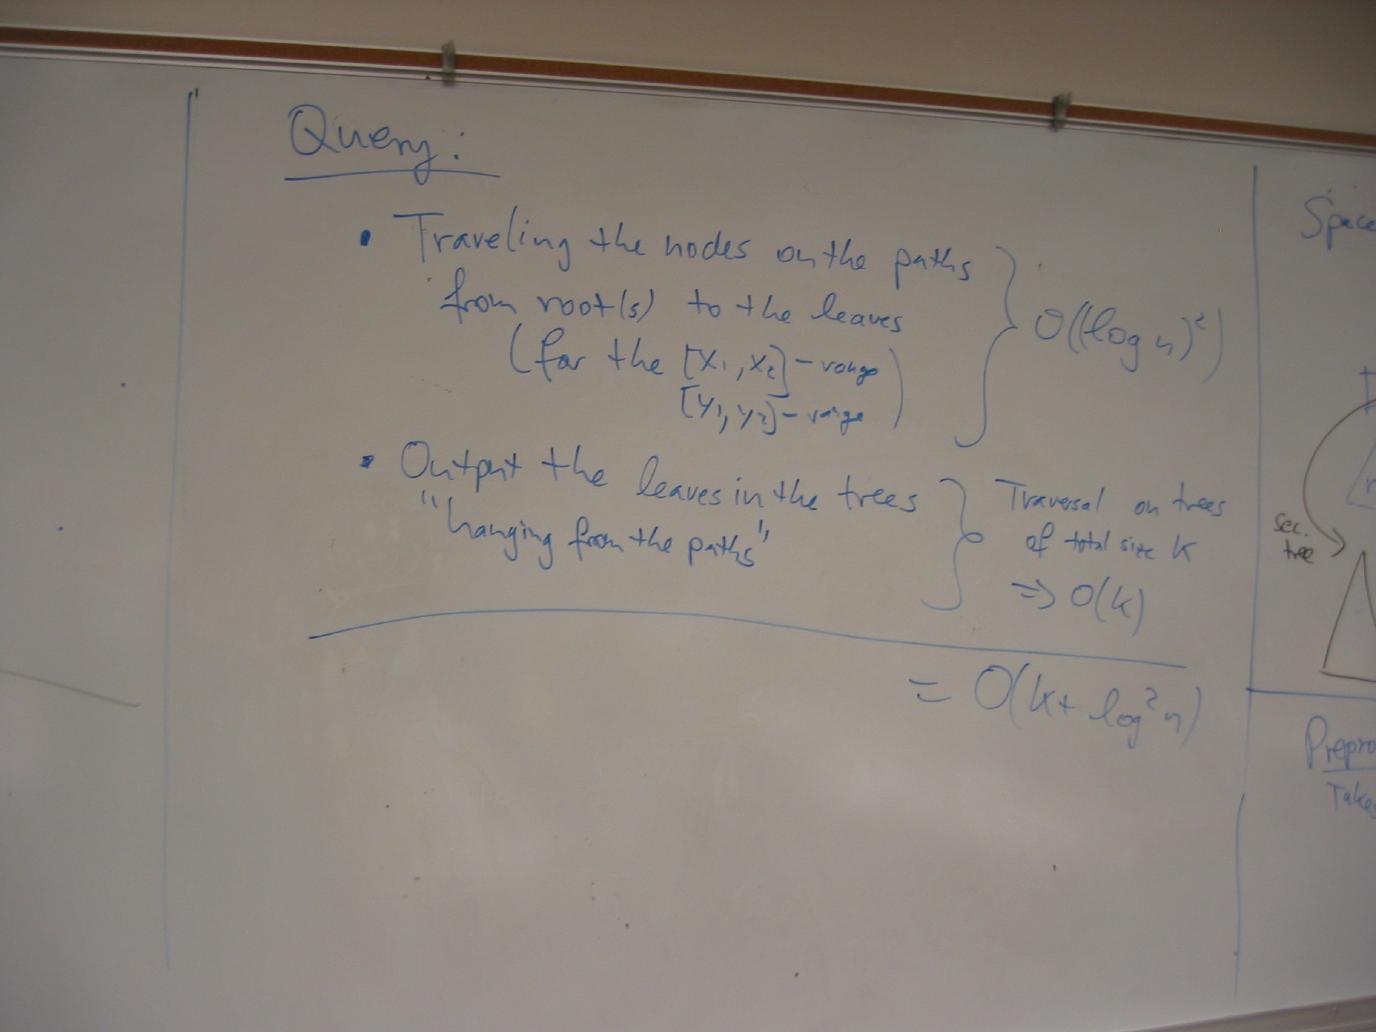 Query:
• Traveling the nodes on the paths
from root(s) to the leaves
(for the [x₁,x₂]-range
[y₁,y₂]-range)
O((log n)²)
• Output the leaves in the trees
"hanging from the paths"
Traversal on trees
of total size k
⇒ O(k)
= O(k+ log²n)
Space
sec.
tree
Prepro
Takes